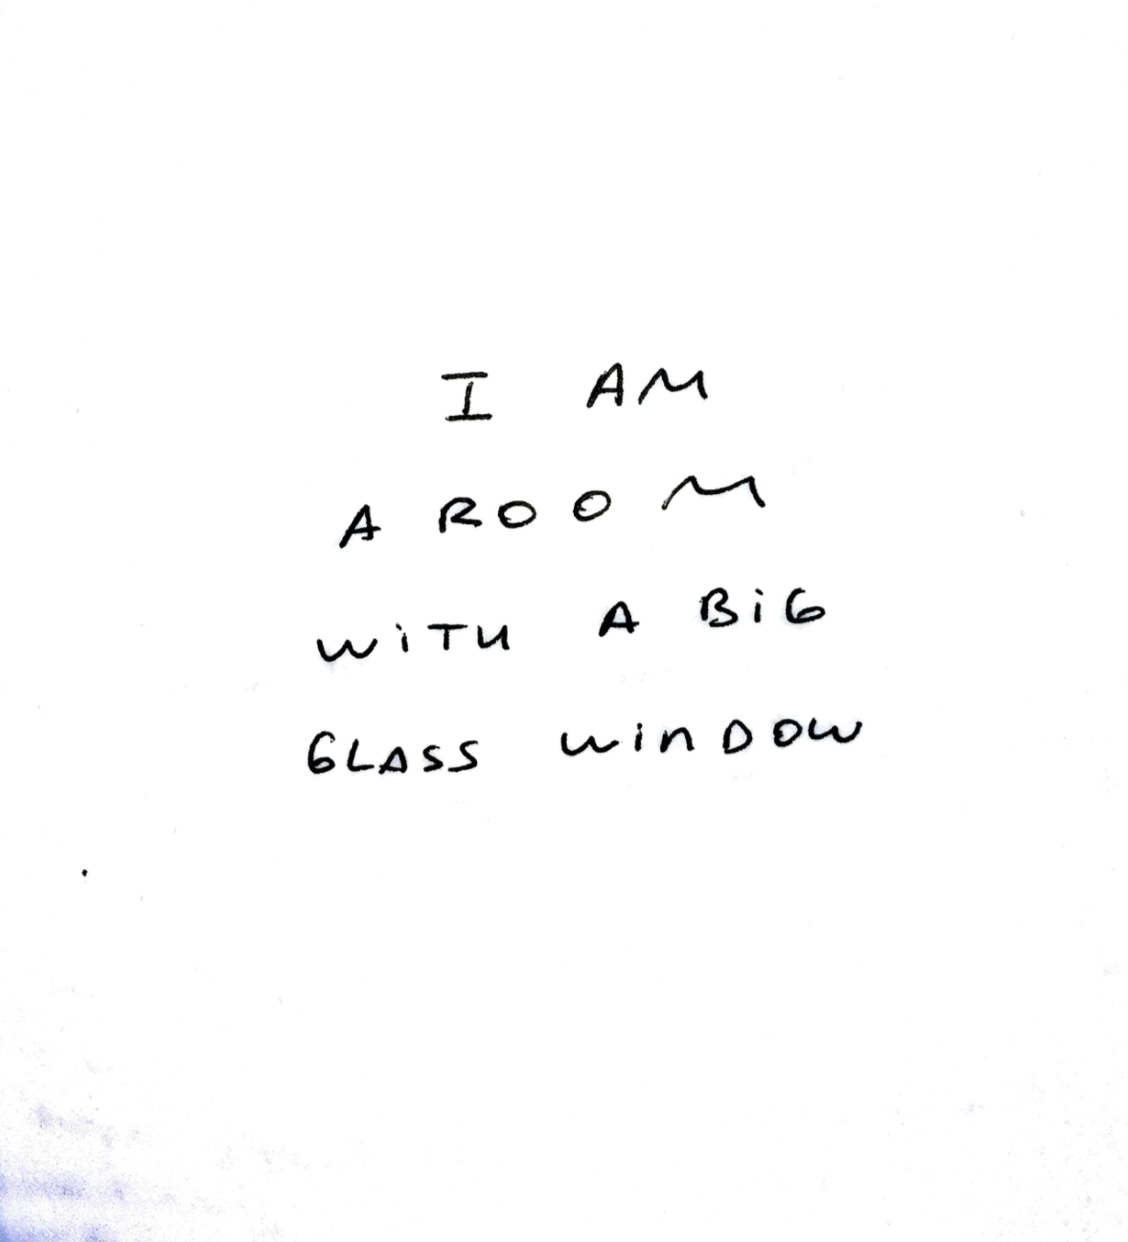 I AM
A ROOM
WiTH A BiG
GLASS WinDOW